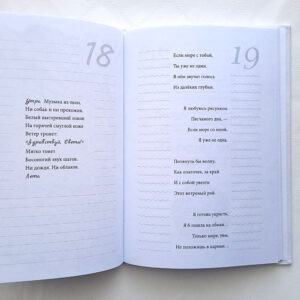 18
Утро. Музыка из окон,
Ни собак и ни прохожих.
Белый выгоревший локон
На горячей смуглой коже
Ветер тронет:
«Здравствуй, Света!»
Мягко тает
Босоногий звук шагов.
Ни дождя. Ни облаков.
Лето.
19
Если море с тобой,
Ты уже не одна.
В нём звучит голос
Из далёких глубин.
Я любуюсь рисунком
Песчаного дна, —
Если море со мной,
Я уже не одна.
Потянуть бы волну,
Как платочек, за край
И с собой увезти
Этот ветреный рай.
Я готова украсть,
Я б пошла на обман...
Только море, увы,
Не положишь в карман...